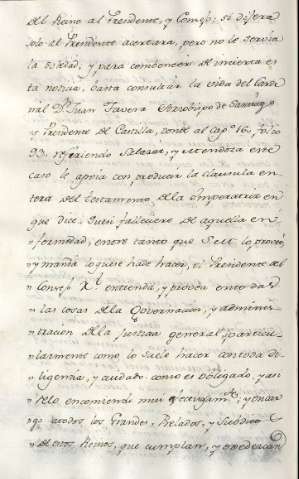 del Reino al Presidente, y Consejo; si dixera
solo al Presidente acertara, pero no le servia
la soledad, y para combencer de incierta es
ta noticia, basta consultar la vida del Carde
nal Dn. Juan Tavera Arzobispo de
y Presidente de Castilla, donde al capo. 16. folio
93. refiriendo Salazar, y Mendoza este
caso le apoia con producir la clausula en
tera del testamento de la Emperatriz en
que dice. Suio falleciere de aquella en
" fermedad, entre tanto que S. el
" y manda lo que se ha de hacer, el Presidente del
" Consejo Rl. entienda, y provea en todas
" las cosas de la Governacion, y adminis
" tracion de la Justicia general, y particu
" larmente como lo suele hacer con toda di
" ligencia, y cuidado como es obligado, y asi
" se lo encomiendo mui y encar
" go a todos los Grandes, Prelados, y Subditos
" de estos Reinos, que cumplan, y obedezcan